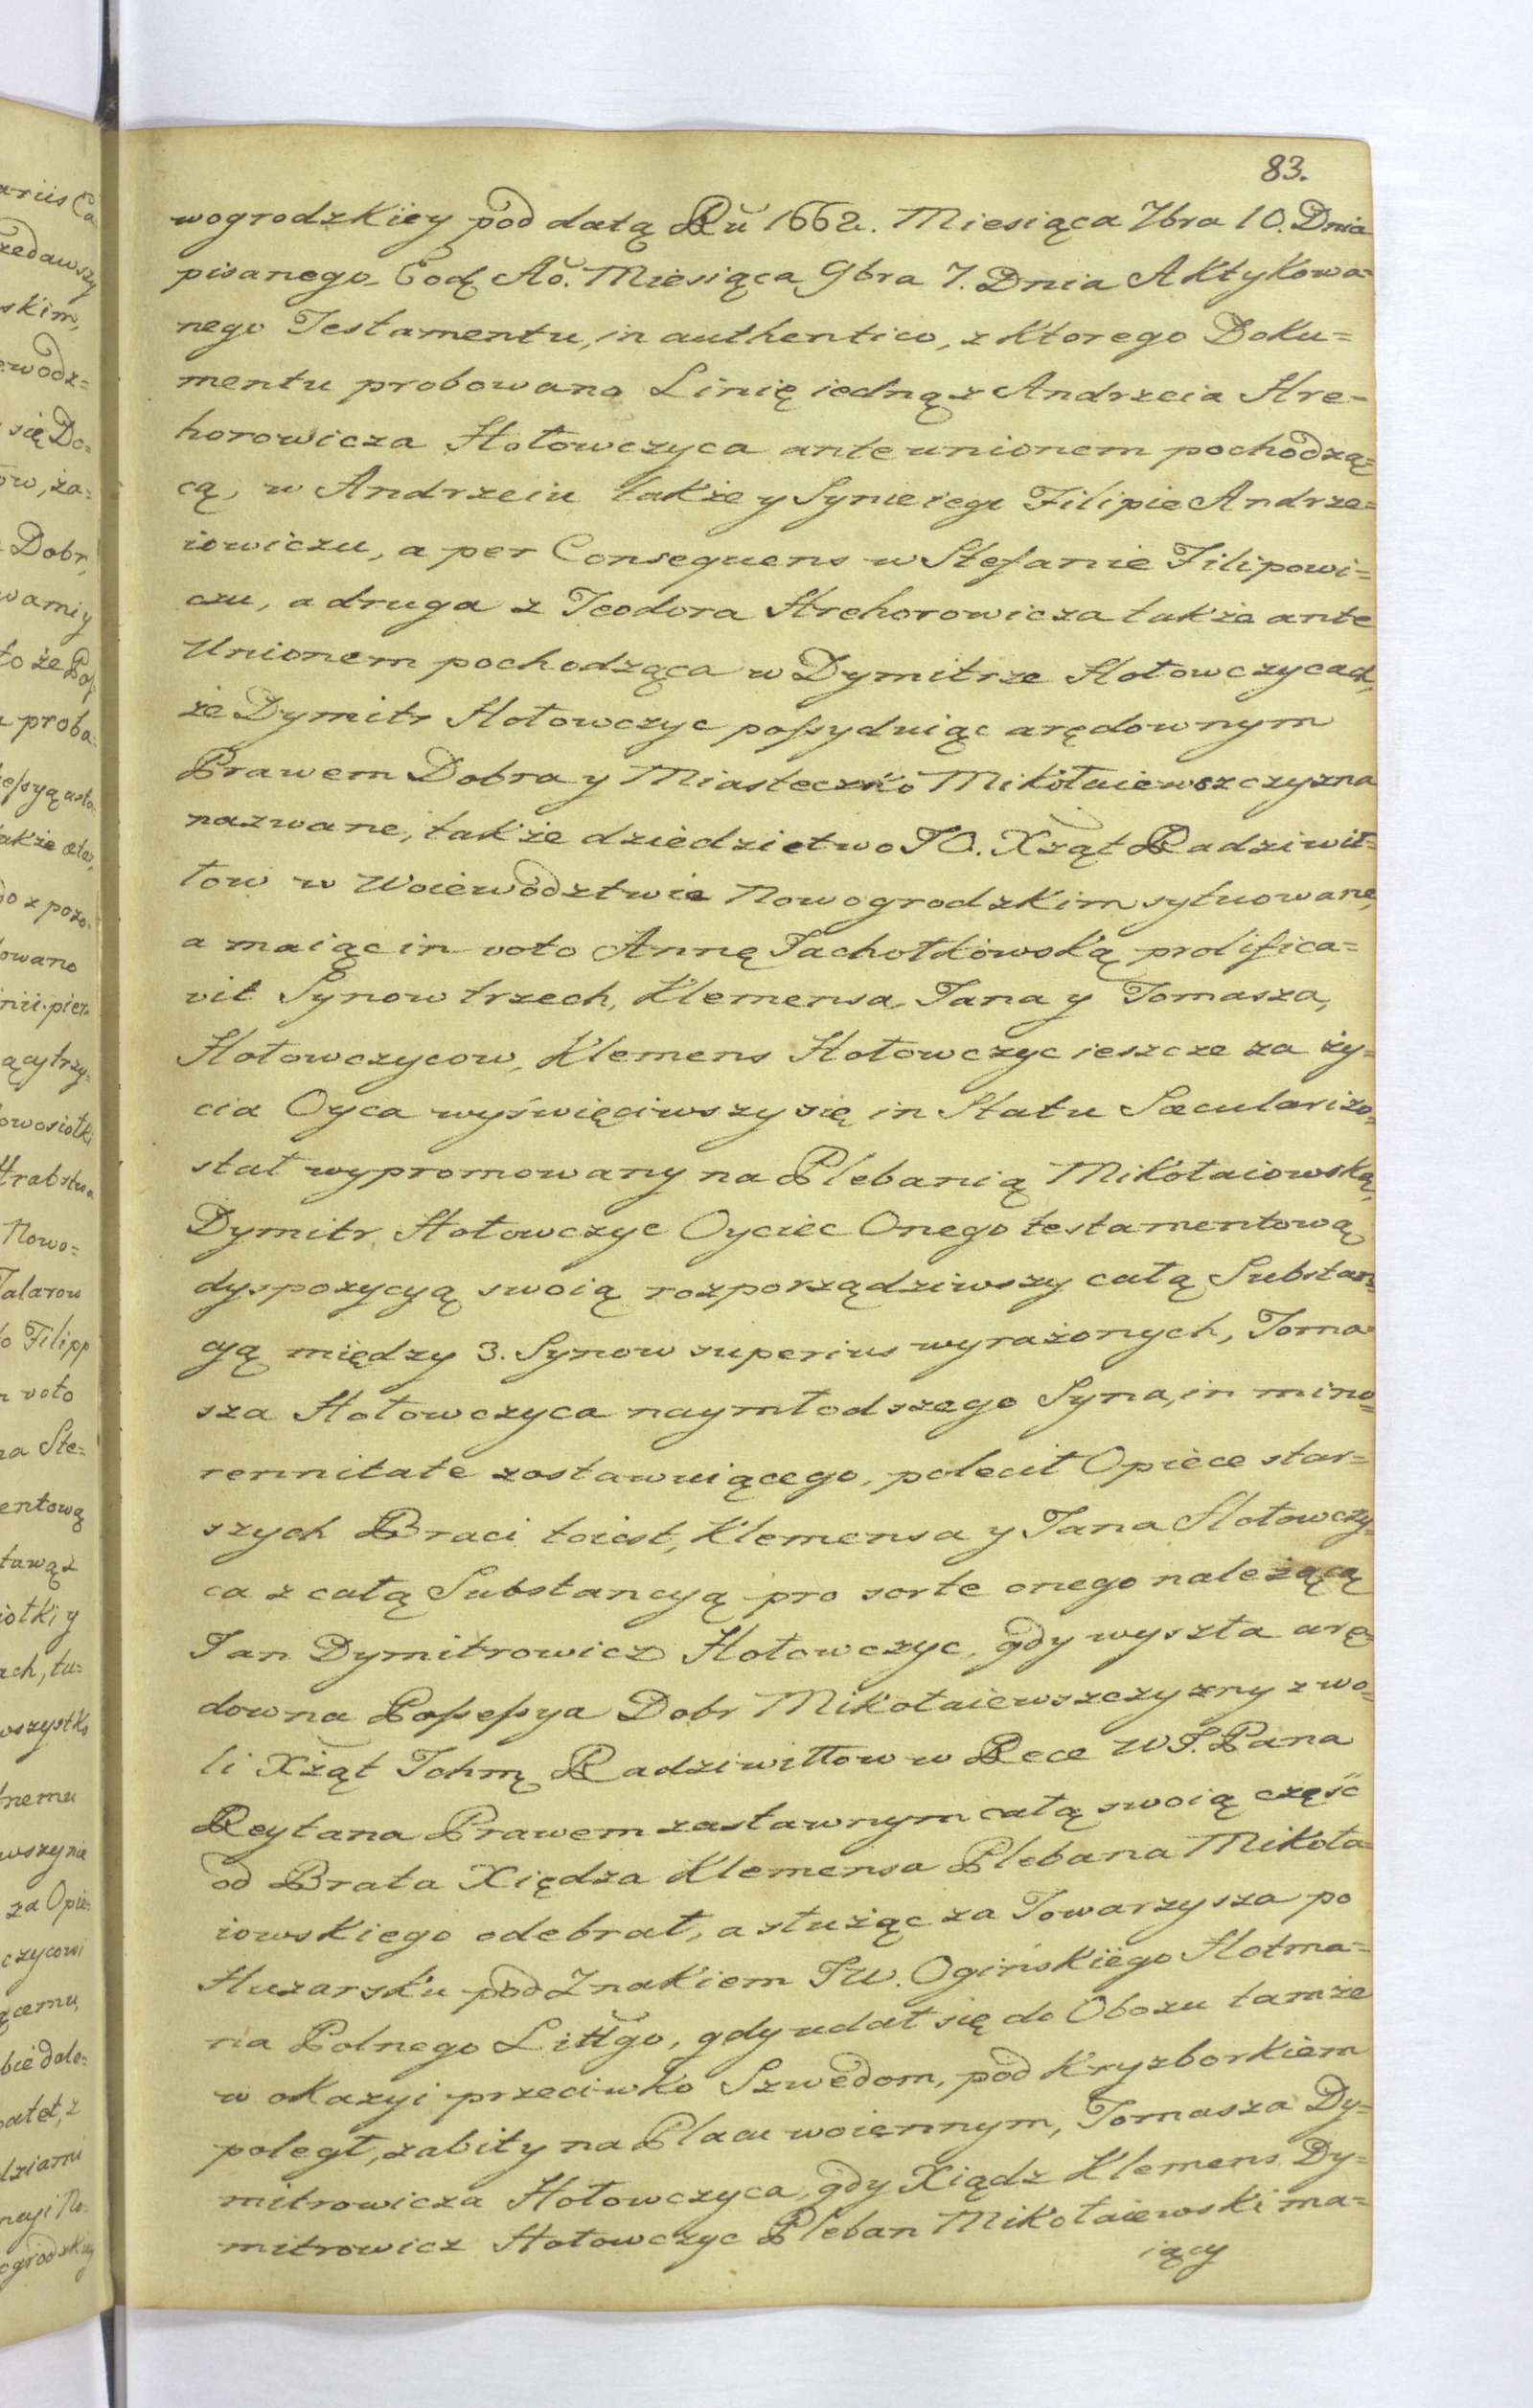 83.
wogrodzkiey pod datą Ru 1662. Miesiąca 7bra 10. Dnia
pisanego Eod. Ao. Miesiąca 9bra 7. Dnia Aktykowa=
nego Testamentu, in authentico, z ktorego Doku=
mentu probowano Linię iedną z Andrzeia Hre=
horowicza Hołowczyca ante unionem pochodzą=
cą, w Andrzeiu także y Synie iego Filipie Andrze=
iowiczu, a per Consequens w Stefanie Filipowi=
czu, a druga z Teodora Hrehorowicza także ante
Unionem pochodząca w Dymitrze Hołowczycach,
że Dymitr Hołowczyc possyduiąc arędownym
Prawem Dobra y Miasteczko Mikołaiewszczyzna
nazwane, także dziedzictwo JO. Xząt Radziwił=
łow w Woiewodztwie Nowogrodzkim sytuowane,
a maiąc in voto Annę Jachołkowską prolifica=
vit Synow trzech, Klemensa, Jana y Tomasza,
Hołowczycow, Klemens Hołowczyc ieszcze za ży=
cia Oyca wyświęciwszy się in Statu Sæculari zo=
stał wypromowany na Plebanią Mikołaiowską,
Dymitr Hołowczyc Oyciec Onego testamentową
dyspozycyą swoią rozporządziwszy całą Substan
cyą między 3. Synow superius wyrażonych, Toma=
sza Hołowczyca naymłodszego Syna, in mino=
rennitate zostawuiącego, polecił Opiece star=
szych Braci toiest, Klemensa y Jana Hołowczy=
ca z całą Substancyą pro sorte onego należącą
Jan Dymitrowicz Hołowczyc, gdy wyszła arę=
downa Possessya Dobr Mikołaiewszczyzny z wo=
li Xżąt Ichmę Radziwiłłow w Ręce WJ. Pana
Reytana Prawem zastawnym całą swoią część
od Brata Xiędza Klemensa Plebana Mikoła=
iowskiego odebrał, a służąc za Towarzysza po
Huzarsku pod Znakiem JW. Ogińskiego Hotma=
na Polnego Littgo, gdy udał się do Obozu tamże
w okazyi przeciwko Szwedom, pod Kryzborkiem
poległ, zabity na Placu woiennym, Tomasza Dy=
mitrowicza Hołowczyca, gdy Xiądz Klemens Dy=
mitrowicz Hołowczyc Pleban Mikołaiewski ma=
iący